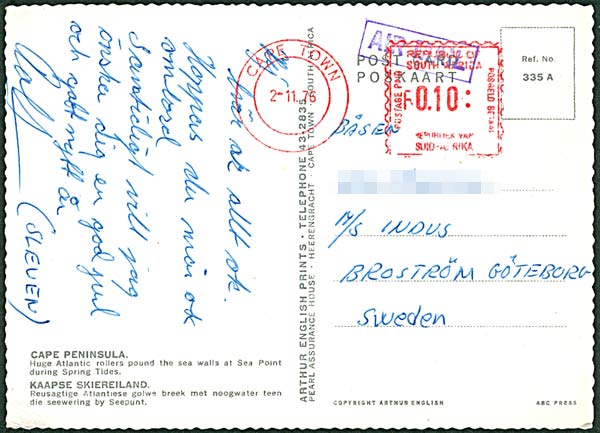 Hej
Hoor är allt ok.
Hoppas du mår ok
ombord
Samtidigt vill jag
önska dig en god jul
och gott nytt år
(SLEVEN)
CAPE PENINSULA.
Huge Atlantic rollers pound the sea walls at Sea Point
during Spring Tides.
KAAPSE SKIEREILAND.
Reusagtige Atlantiese golwe breek met hoogwater teen
die seewering by Seepunt.
ARTHUR ENGLISH PRINTS · TELEPHONE 43-2835
PEARL ASSURANCE HOUSE · HEERENGRACHT · CAPE TOWN · SOUTH AFRICA
CAPE TOWN
2-11.76
AIR MAIL
POST CARD
POSKAART
REPUBLIC OF
SOUTH AFRICA
POSTAGE PAID
R0.10
POSGELD BETAAL
REPUBLIEK VAN
SUID-AFRIKA
Ref. No.
335 A
BÅSEN
M/S INDUS
BROSTRÖM GÖTEBORG
Sweden
COPYRIGHT ARTHUR ENGLISH
ABC PRESS